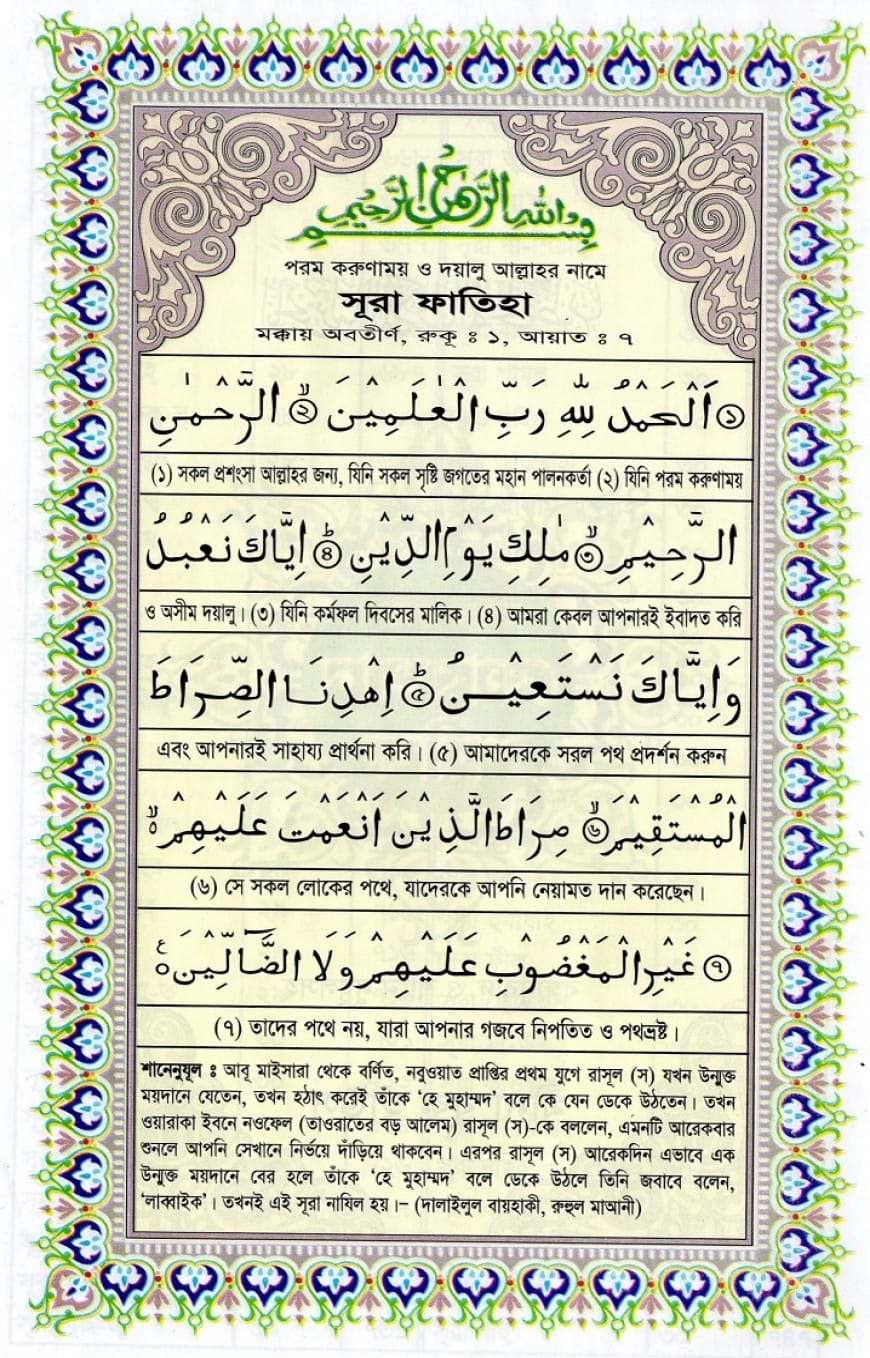 بِسْمِ اللهِ الرَّحْمٰنِ الرَّحِيْمِ
পরম করুণাময় ও দয়ালু আল্লাহর নামে
সূরা ফাতিহা
মক্কায় অবতীর্ণ, রুকূ ঃ ১, আয়াত ঃ ৭
১ اَلْحَمْدُ لِلّٰهِ رَبِّ الْعٰلَمِيْنَ ۙ ২ الرَّحْمٰنِ
(১) সকল প্রশংসা আল্লাহর জন্য, যিনি সকল সৃষ্টি জগতের মহান পালনকর্তা (২) যিনি পরম করুণাময়
الرَّحِيْمِ ۙ ৩ مٰلِكِ يَوْمِ الدِّيْنِ ؕ ৪ اِيَّاكَ نَعْبُدُ
ও অসীম দয়ালু। (৩) যিনি কর্মফল দিবসের মালিক। (৪) আমরা কেবল আপনারই ইবাদত করি
وَ اِيَّاكَ نَسْتَعِيْنُ ؕ ৫ اِهْدِنَا الصِّرَاطَ
এবং আপনারই সাহায্য প্রার্থনা করি। (৫) আমাদেরকে সরল পথ প্রদর্শন করুন
الْمُسْتَقِيْمَ ۙ ৬ صِرَاطَ الَّذِيْنَ اَنْعَمْتَ عَلَيْهِمْ ۙ۬
(৬) সে সকল লোকের পথে, যাদেরকে আপনি নেয়ামত দান করেছেন।
৭ غَيْرِ الْمَغْضُوْبِ عَلَيْهِمْ وَلَا الضَّآلِّيْنَ ع
(৭) তাদের পথে নয়, যারা আপনার গজবে নিপতিত ও পথভ্রষ্ট।
শানেনুযূল ঃ আবূ মাইসারা থেকে বর্ণিত, নবুওয়াত প্রাপ্তির প্রথম যুগে রাসূল (স) যখন উন্মুক্ত
ময়দানে যেতেন, তখন হঠাৎ করেই তাঁকে ‘হে মুহাম্মদ’ বলে কে যেন ডেকে উঠতেন। তখন
ওয়ারাকা ইবনে নওফেল (তাওরাতের বড় আলেম) রাসূল (স)-কে বললেন, এমনটি আরেকবার
শুনলে আপনি সেখানে নির্ভয়ে দাঁড়িয়ে থাকবেন। এরপর রাসূল (স) আরেকদিন এভাবে এক
উন্মুক্ত ময়দানে বের হলে তাঁকে ‘হে মুহাম্মদ’ বলে ডেকে উঠলে তিনি জবাবে বলেন,
‘লাব্বাইক’। তখনই এই সূরা নাযিল হয়।– (দালাইলুল বায়হাকী, রুহুল মাআনী)